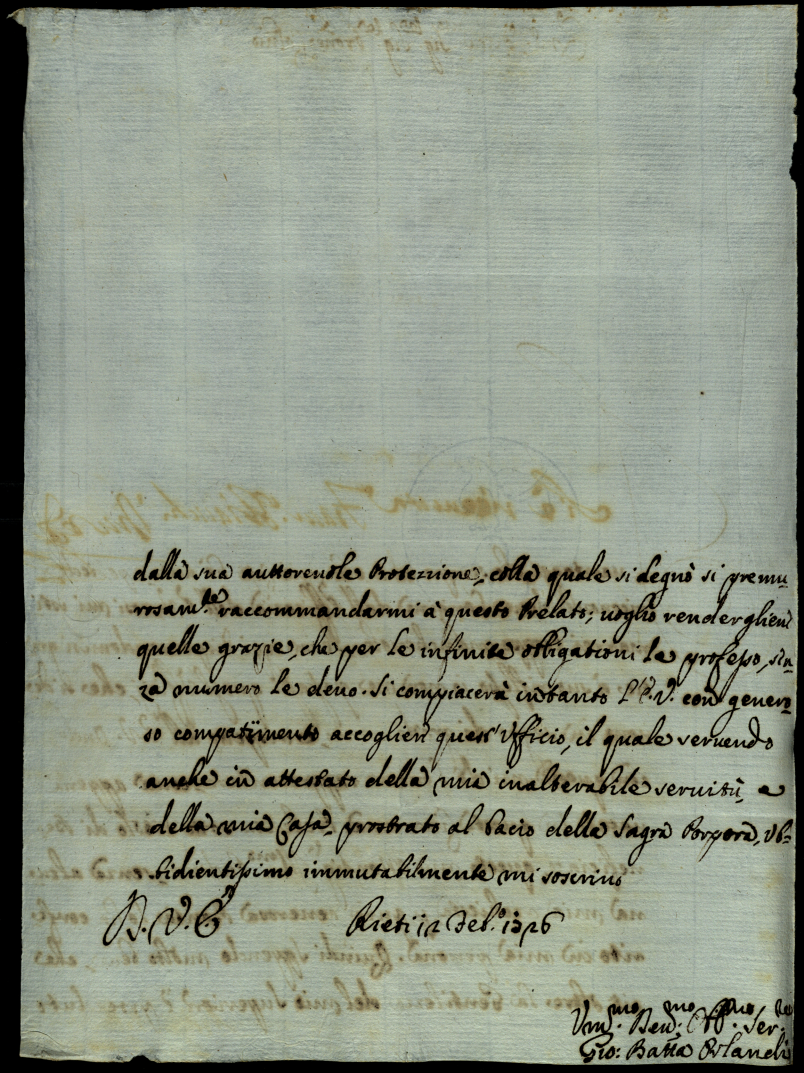 dalla sua auttoreuole Protezzione, colla quale si degnò si premu-
rosam.te raccommandarmi à questo Prelato; uoglio rendergliene
quelle grazie, che per le infinite obligationi le professo, sen-
za numero le deuo. Si compiacerà intanto l'E.V. con genero-
so compatimento accogliere quest'Vfficio, il quale seruendo
anche in attestato della mia inalterabile seruitù, e
della mia Casa, prostrato al bacio della Sagra Porpora, vb-
bidientissimo immutabilmente mi soscriuo
D. V. E.
Rieti 12 1726
Vm.mo Deu.mo Obb.mo Ser.re
Gio: Batta Orlandi